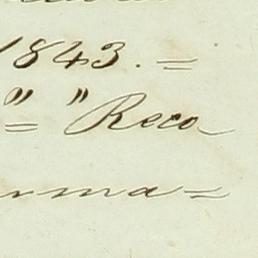 1843. =
" = "Reco_
rma=